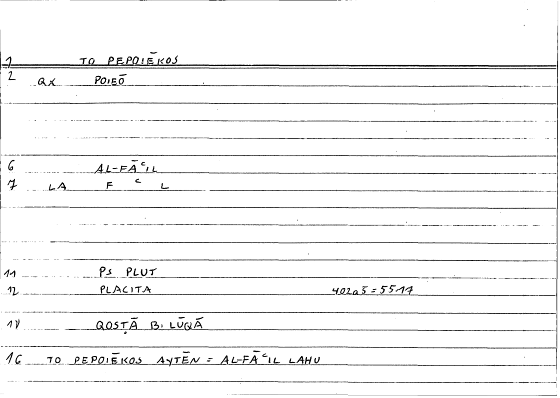 1 TO PEPOIĒKOS
2 QX POIEŌ
6 AL-FĀʿIL
7 LA F ʿ L
11 PS PLUT
12 PLACITA 402a5=5517
14 QOSṬĀ B. LŪQĀ
16 TO PEPOIĒKOS AYTĒN = AL-FĀʿIL LAHU